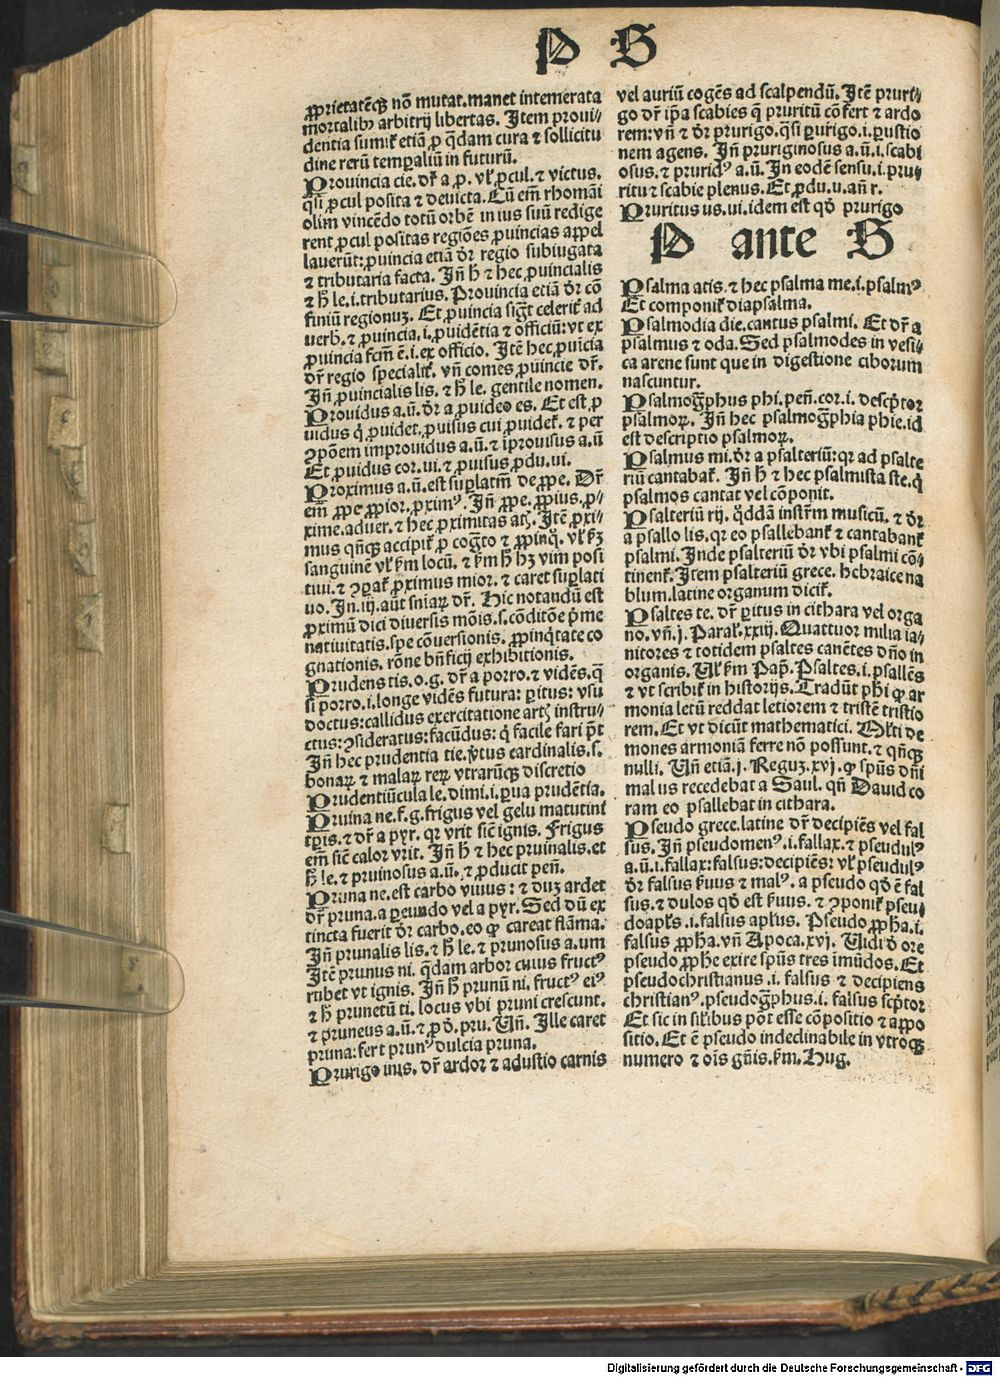 P S
ꝓprietatēqꝫ nō mutat. manet intemerata
mortalibꝰ arbitrij libertas. Itē proui⸗
dentia sumit᷑ etiā ꝓ q̄dam cura ⁊ sollicitu
dine rerū tempaliū in futurū.
Prouincia cie. dr̄ a p. vl̓ ꝓcul. ⁊ victus.
q̄si ꝓcul posita ⁊ deuicta. Cū em̄ rhomāi
olim vincēdo totū orbē in ius suū redige
rent ꝓcul positas regiōes ꝓuincias appel
lauerūt: ꝓuincia etiā dr̄ regio subiugata
⁊ tributaria facta. Iñ h̄ ⁊ hec ꝓuincialis
⁊ h̄ le. i. tributarius. Prouincia etiā dr̄ cō
finiū regionuꝫ. Et ꝓuincia sigt̄ celerit̓ ad
uerb̓. ⁊ ꝓuincia. i. ꝓuidētia ⁊ officiū: vt ex
ꝓuincia fcm̄ ē. i. ex officio. Itē hec ꝓuīcia
dr̄ regio specialit̓. vñ comes ꝓuincie dr̄.
Iñ ꝓuincialis lis. ⁊ h̄ le. gentile nomen.
Prouidus a.ū. dr̄ a ꝓuideo es. Et est ꝓ
uidus q̇ ꝓuidet. ꝓuisus cui ꝓuidet᷑. ⁊ per
ꝯpōem improuidus a.ū. ⁊ īprouisus a.ū
Et ꝓuidus cor. ui. ⁊ ꝓuisus ꝓdu. ui.
Proximus a.ū. est suꝑlatm̄ de ꝓpe. Dr̄
em̄ ꝓpe ꝓpior. ꝓximꝰ. Iñ ꝓpe. ꝓpius. ꝓ⸗
xime. aduer. ⁊ hec ꝓximitas atꝭ. Itē ꝓxi⸗
mus qñqꝫ accipit᷑ ꝓ cog̅to ⁊ ꝓpinq̊. vl̓ ẜꝫ
sanguinē vl̓ ẜm locū. ⁊ ẜm h̄ hꝫ vim posi
tiui. ⁊ ꝯꝑat᷑ ꝓximus mior. ⁊ caret suꝑlati
uo. In .iij. aūt sniaꝝ dr̄. Hic notandū est
ꝓximū dici diuersis mōis. s. cōditōe pͥme
natiuitatis. spe cōuersionis. ꝓpinq̇tate co
gnationis. rōne bñficij exhibitionis.
Prudens tis. o.g. dr̄ a porro. ⁊ vidēs. q̄
si porro. i. longe vidēs futura: ꝑitus: vsu
doctus: callidus exercitatione artꝭ instru⸗
ctus: ꝯsideratus: facūdus: q̇ facile fari pōt
Iñ hec prudentia tie. v̓tus cardinalis. s.
bonaꝝ ⁊ malaꝝ reꝝ vtrarūqꝫ discretio
Prudentiūcula le. dimi. i. ꝑua prudētia.
Pruina ne. f.g. frigus vel gelu matutini
tꝑis. ⁊ dr̄ a pyr. qꝛ vrit sic̄ ignis. Frigus
em̄ sic̄ calor vrit. Iñ h̄ ⁊ hec pruinalis. et
h̄ le. ⁊ pruinosus a.ū. ⁊ ꝓducit peñ.
Pruna ne. est carbo viuus: ⁊ duꝫ ardet
dr̄ pruna. a ꝑeundo vel a pyr. Sed dū ex
tincta fuerit dr̄ carbo. eo ꝙ careat flāma.
Iñ prunalis lis. ⁊ h̄ le. ⁊ prunosus a.um
Itē prunus ni. q̄dam arbor cuius fructꝰ
rubet vt ignis. Iñ h̄ prunū ni. fructꝰ eiꝰ
⁊ h̄ prunetū ti. locus vbi pruni crescunt.
⁊ pruneus a.ū. ⁊ ꝓd. pru. Vñ. Ille caret
pruna: fert prunꝰ dulcia pruna.
Prurigo inis. dr̄ ardor ⁊ adustio carnis
vel auriū cogēs ad scalpendū. Itē pruri⸗
go dr̄ ip̄a scabies q̄ pruritū cōfert ⁊ ardo
rem: vñ ⁊ dr̄ prurigo. q̄si ꝑurigo. i. ꝑustio
nem agens. Iñ pruriginosus a.ū. i. scabi
osus. ⁊ pruridꝰ a.ū. In eodē sensu. i. pru⸗
ritu ⁊ scabie plenus. Et ꝓdu. u. añ r.
Pruritus us. ui. idem est qd̓ prurigo
P ante S
Psalma atis. ⁊ hec psalma me. i. psalmꝰ
Et componit᷑ diapsalma.
Psalmodia die. cantus psalmi. Et dr̄ a
psalmus ⁊ oda. Sed psalmodes in vesi⸗
ca arene sunt que in digestione ciborum
nascuntur.
Psalmog̅phus phi. peñ. cor. i. descp̄tor
psalmoꝝ. Iñ hec psalmog̅phia phie. id
est descriptio psalmoꝝ.
Psalmus mi. dr̄ a psalteriū: qꝛ ad psalte
riū cantabat᷑. Iñ h̄ ⁊ hec psalmista ste. q̇
psalmos cantat vel cōponit.
Psalteriū rij. q̊ddā instr̄m musicū. ⁊ dr̄
a psallo lis. qꝛ eo psallebant᷑ ⁊ cantabant᷑
psalmi. Inde psalteriū dr̄ vbi psalmi cō⸗
tinent᷑. Item psalteriū grece. hebraice na
blum. latine organum dicit᷑.
Psaltes te. dr̄ ꝑitus in cithara vel orga
no. vñ. j. Paral̓. xxiij. Quattuor milia ia⸗
nitores ⁊ totidem psaltes canētes dño in
organis. Vl̓ ẜm Pap̄. Psaltes. i. psallēs
⁊ vt scribit᷑ in historijs. Tradūt phi ꝙ ar
monia letū reddat letiorem ⁊ tristē tristio
rem. Et vt dicūt mathematici. Ml̓ti de
mones armoniā ferre nō possunt. ⁊ qñqꝫ
nulli. Vñ etiā. j. Reguꝫ. xvj. ꝙ spūs dñi
malus recedebat a Saul. qñ Dauid co
ram eo psallebat in cithara.
Pseudo grece. latine dr̄ decipiēs vel fal
sus. Iñ pseudomenꝰ. i. fallax. ⁊ pseudulꝰ
a.ū. i. fallax: falsus: decipiēs: vl̓ pseudulꝰ
dr̄ falsus ẜuus ⁊ malꝰ. a pseudo qd̓ ē fal
sus. ⁊ dulos qd̓ est ẜuus. ⁊ ꝯponit᷑ pseu⸗
doapl̓s. i. falsus apl̓us. Pseudo ꝓpha. i.
falsus ꝓpha. vñ Apoca. xvj. Vidi d̓ ore
pseudo ꝓphe exire spūs tres īmūdos. Et
pseudochristianus. i. falsus ⁊ decipiens
christianꝰ. pseudog̅phus. i. falsus scp̄tor
Et sic in sil̓ibus pōt esse cōpositio ⁊ appo
sitio. Et ē pseudo indeclinabile in vtroqꝫ
numero ⁊ ois gñis. ẜm. Hug.
Digitalisierung gefördert durch die Deutsche Forschungsgemeinschaft - DFG